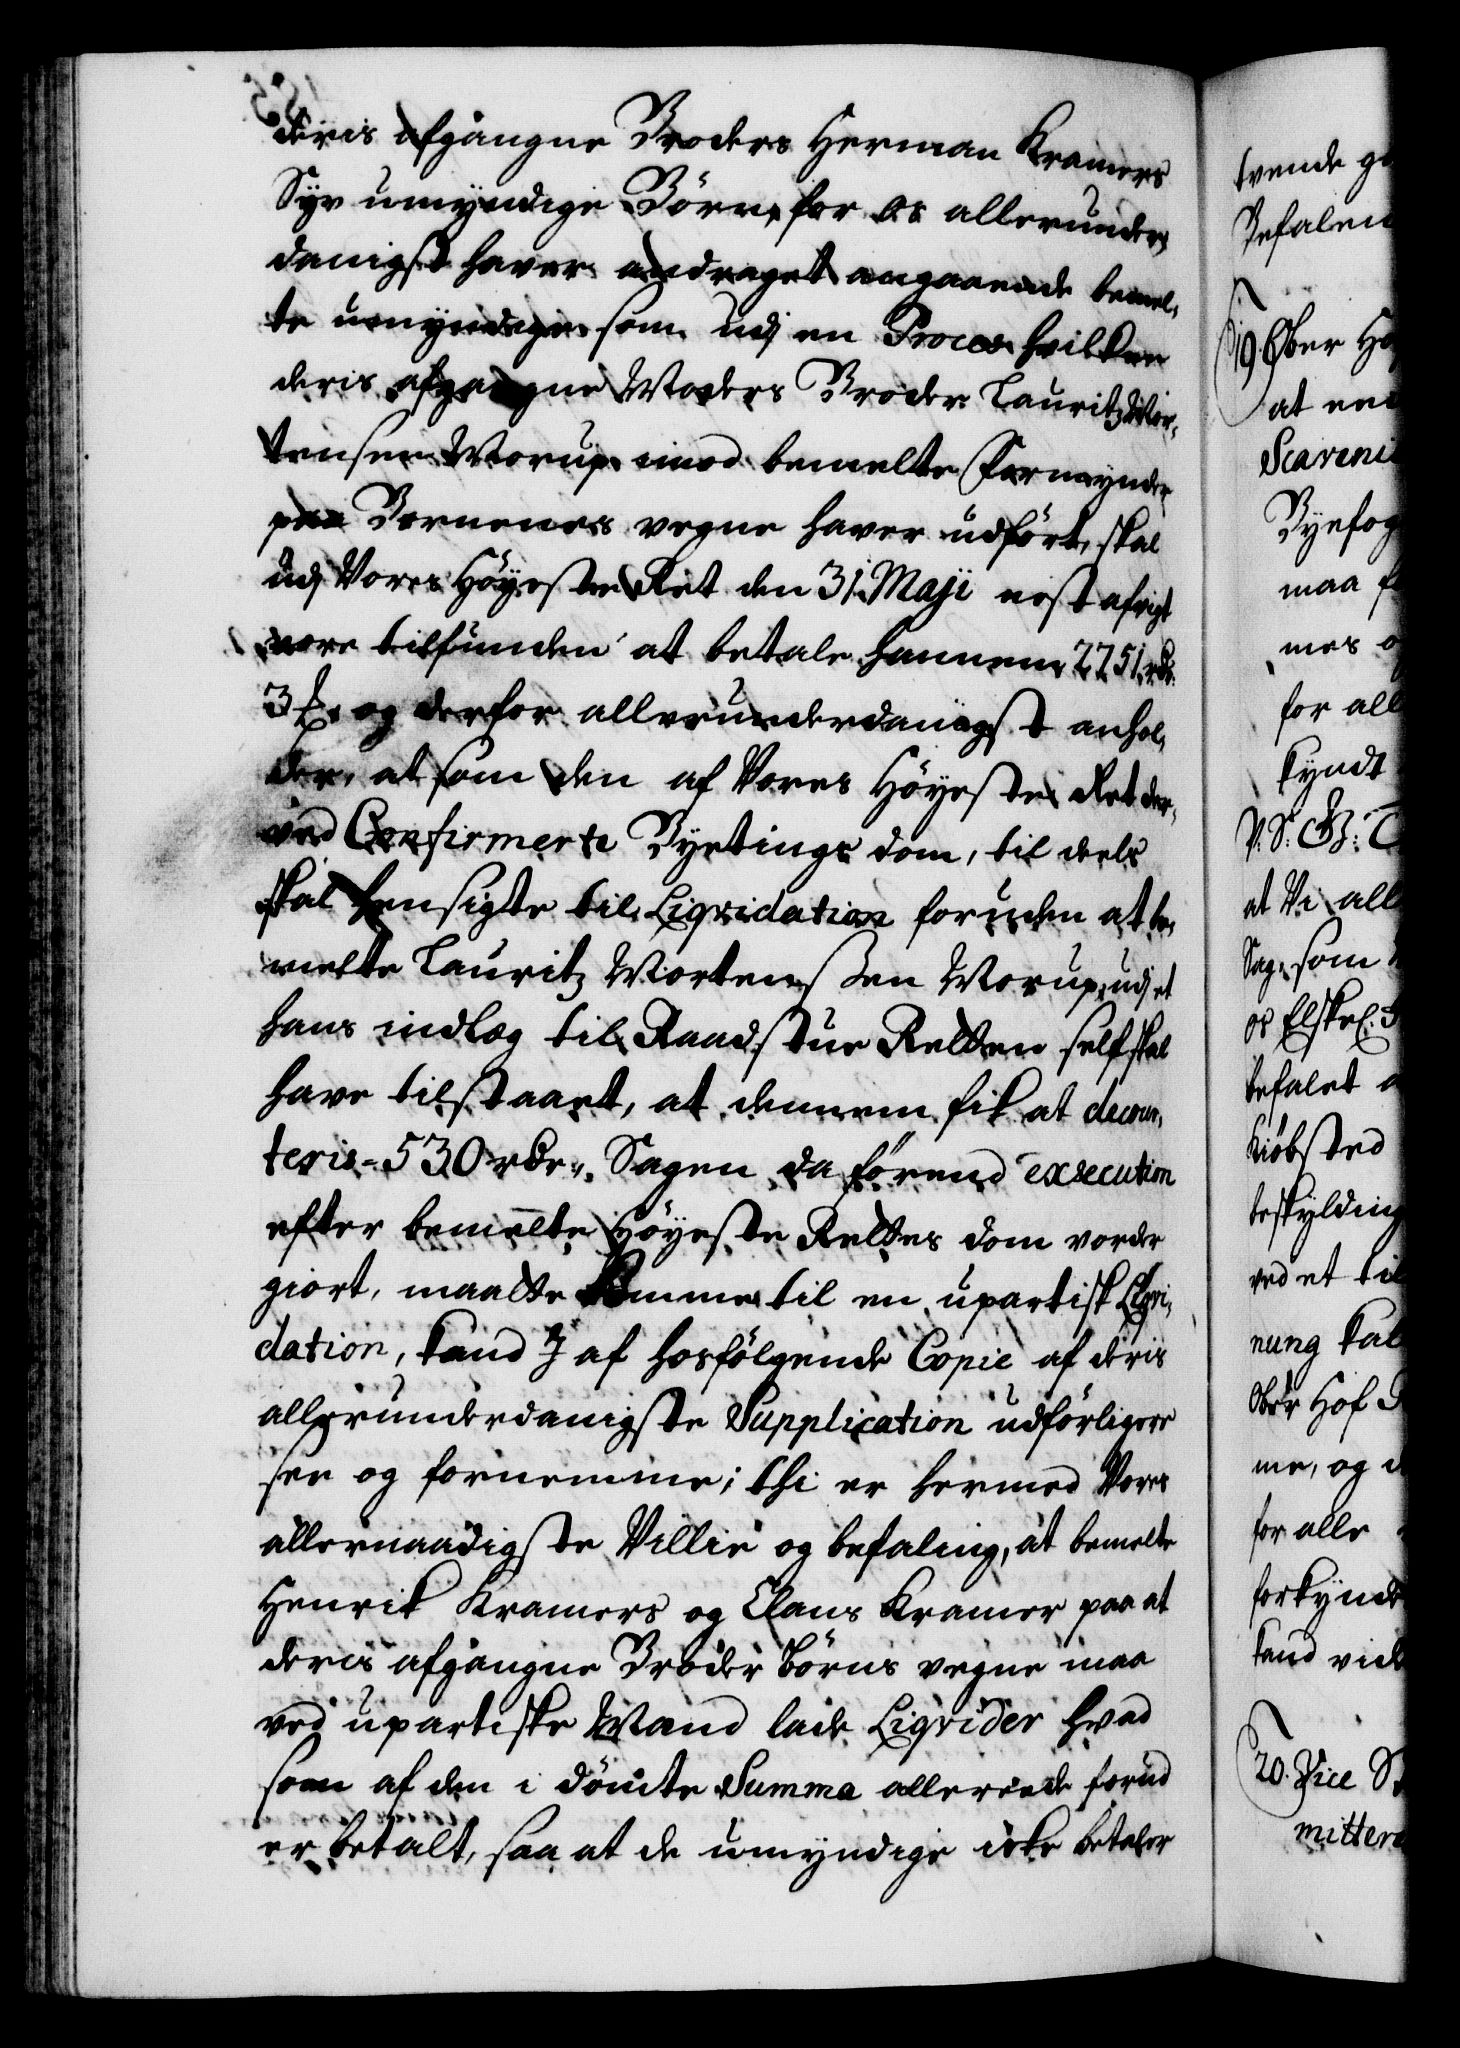 deris afgangne Broders Herman Kramers
Syv umyndige Börn, for os allerunder,
danigst haver andraget angaaende bemel,
te umyndige som udj en Proces hvilken
deris afgangne Moders Broder Lauritz Mor,
tensen Morup imod bemelte Formynder
paa Bornenes vegne haver udfört, skal
udj Vores Höyeste Ret den 31. Maji nest afvigt
være tilfunden at betale hannem 2251 rdr.
3 ß. og derfor allerunderdanigst anhol,
der, at som den af Vores Höyeste Ret der,
ved Confirmerte Byetings dom, til deels
skal hensigte til Liqvidation foruden at be,
melte Lauritz Mortensen Morup, udj et
hans indlæg til Raadstue Retten self skal
have tilstaaet, at dennem fik at decour,
teris = 530 rdr., Sagen da förend execution
efter bemelte Höyeste Rettes dom vorder
giort, maatte komme til en upartisk Liqvi,
dation, kand I af hosfölgende Copie af deris
allerunderdanigste Supplication udförligere
see og fornemme; thi er hermed Vores
allernaadigste Villie og befaling, at bemelte
Henrik Kramers og Claus Kramer paa at
deris afgangne Broder börns vegne maa
ved upartiske Mænd lade Liqvider hvad
som af den i dömte Summa allereede forud
er betalt, saa at de umyndige icke betaler
tvende
Befalen
19. Ober Ho
at een
Scaveni
Byefog
maa
mes
for all
kyndt
P. S. G. T
at Vi all
Sag, som
os Elskel.
befalet
Kiöbsted
beskylding
ved et til
nung kal
Ober Hof
me, og
for alle
forkyndt
kand vide
20. Vice S
mittere